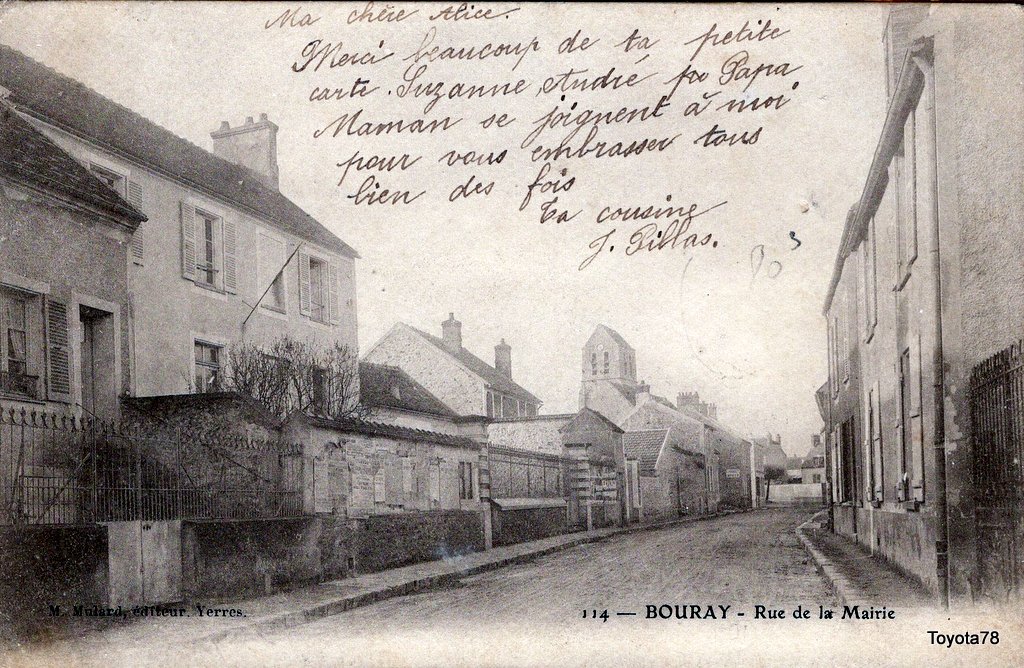 Ma chère Alice.
Merci beaucoup de ta petite
carte. Suzanne, André, Papa
Maman se joignent à moi
pour vous embrasser tous
bien des fois
Ta cousine
J. Pillas.
M. Mulard, éditeur. Yerres.
114 — BOURAY - Rue de la Mairie
Toyota78